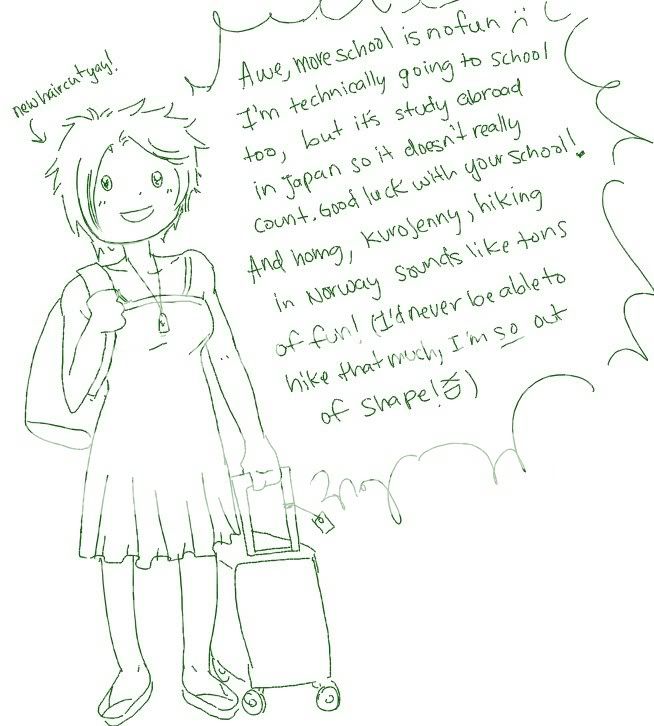 new haircut yay!
Awe, more school is no fun :(
I'm technically going to school
too, but it's study abroad
in Japan so it doesn't really
count. Good luck with your school!
And homg, KuroJenny, hiking
in Norway sounds like tons
of fun! (I'd never be able to
hike that much, I'm so out
of shape!)